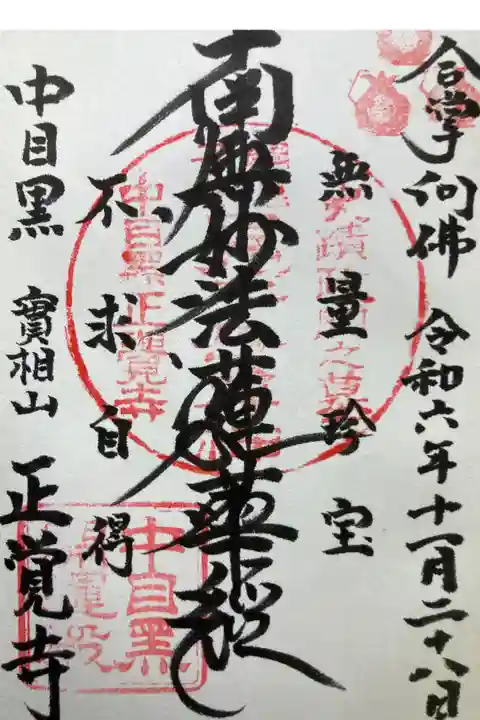 合掌向佛 令和六年十一月二十八日
無量珍宝
南無妙法蓮華経
不求自得
中目黒 實相山 正覚寺
中目黒正覺寺
中目黒